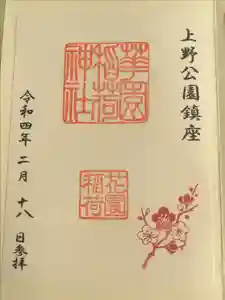 上野公園鎮座
華園
稲荷
神社
花園
稲荷
令和四年 二月 十八 日参拝